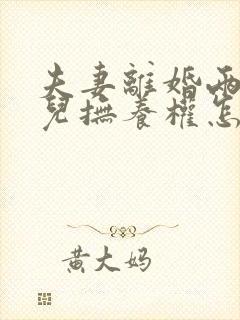 夫妻離婚兩
兒撫養權怎
黄大妈